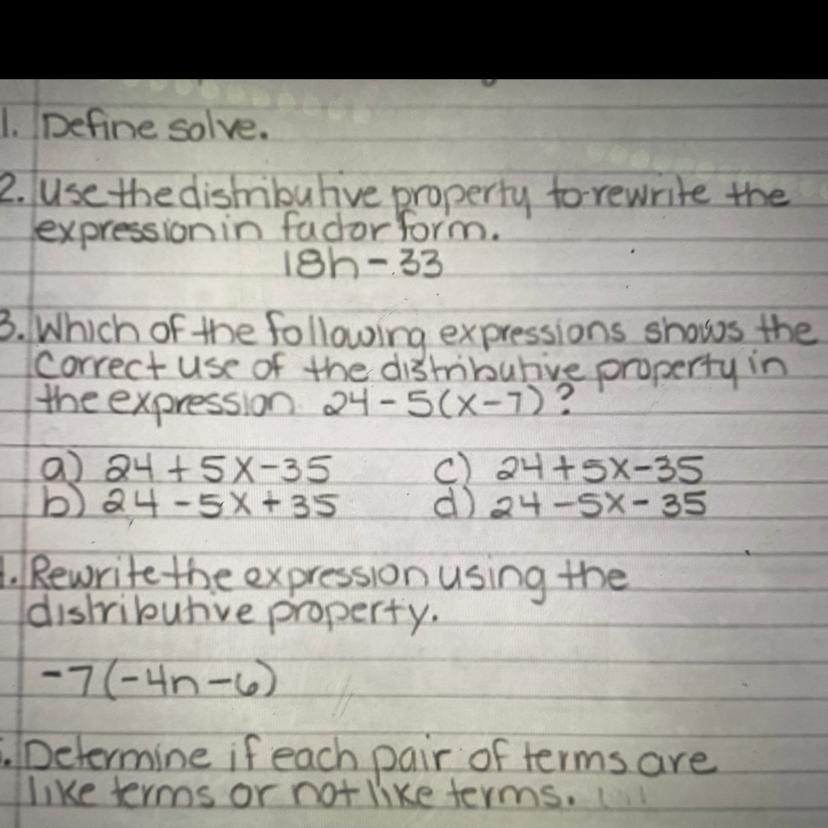 1. Define solve.
2. Use the distributive property to rewrite the
expression in factor form.
18h - 33
3. Which of the following expressions shows the
correct use of the distributive property in
the expression 24 - 5(x - 7)?
a) 24 + 5x - 35 c) 24 + 5x - 35
b) 24 - 5x + 35 d) 24 - 5x - 35
. Rewrite the expression using the
distributive property.
-7(-4n - 6)
. Determine if each pair of terms are
like terms or not like terms.